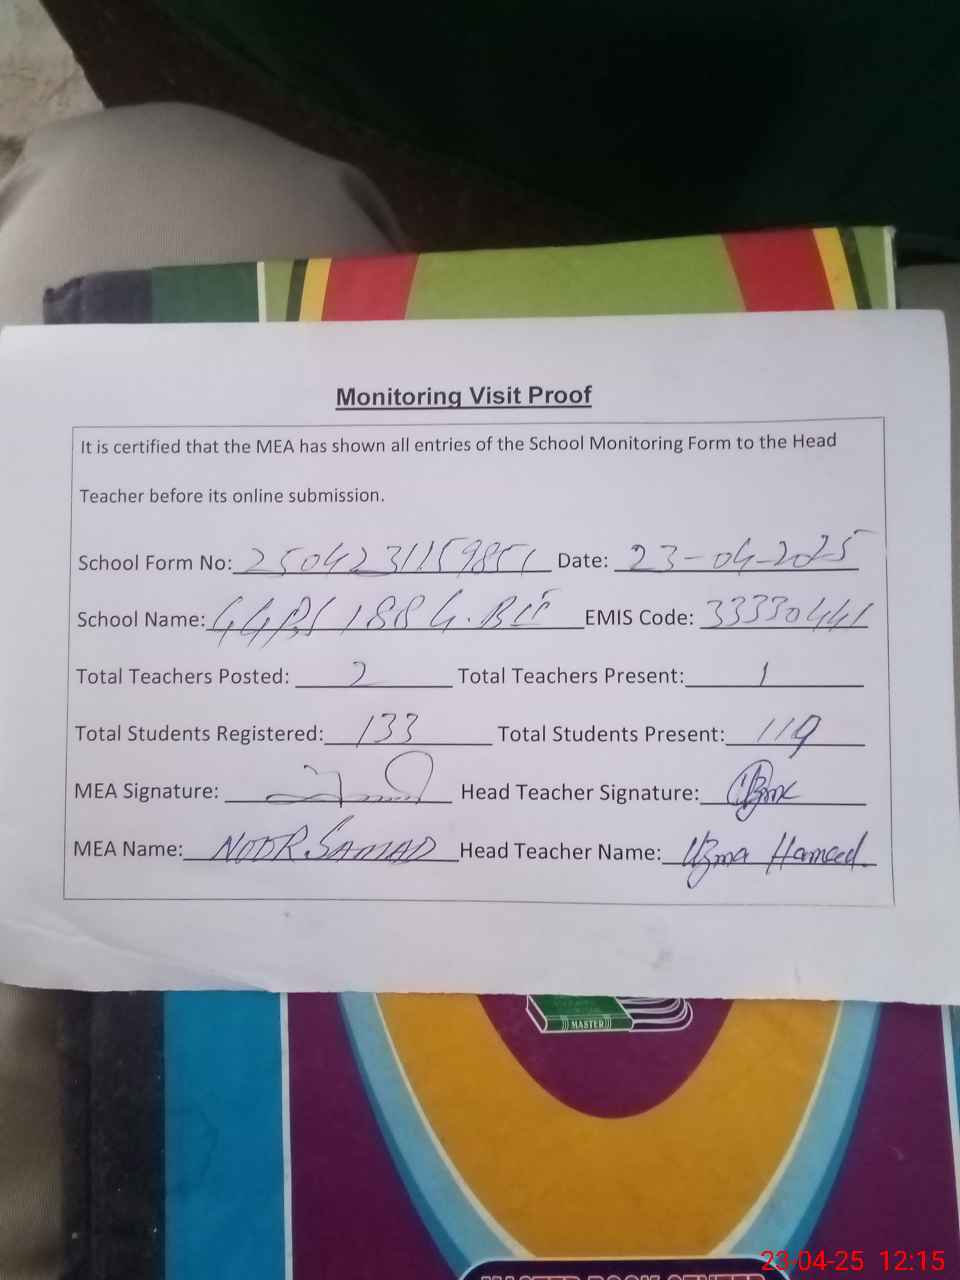 Monitoring Visit Proof
It is certified that the MEA has shown all entries of the School Monitoring Form to the Head
Teacher before its online submission.
School Form No: 2504231159851 Date: 23-04-2025
School Name: GGPS 188 G.B II EMIS Code: 33330441
Total Teachers Posted: 2 Total Teachers Present: 1
Total Students Registered: 133 Total Students Present: 119
MEA Signature: Head Teacher Signature:
MEA Name: NOOR SAMAD Head Teacher Name: Uzma Hameed
MASTER
23-04-25 12:15